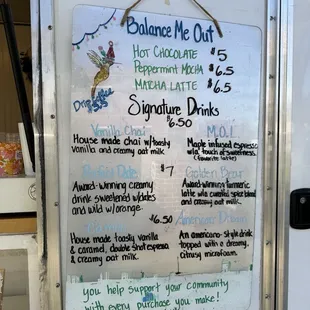 Balance Me Out
Hot Chocolate $5
Peppermint Mocha $6.5
Matcha Latte $6.5
Drip Coffee
Signature Drinks
$6.50
Vanilla Chai
House made chai w/toasty
vanilla and creamy oat milk
M.O.I.
Maple infused espresso
w/a touch of sweetness
(favorite latte)
$7
Date
Award-Winning creamy
drink sweetened w/dates
and wild w/orange
Golden Bear
Award-winning turmeric
latte w/a cuerda spice blend
and creamy oat
$6.50
House made toasty vanilla
& caramel, double shot espresso
& creamy oat milk.
American Dream
An americano-style drink
topped with a dreamy,
citrusy microfoam.
you help support your community
with every purchase you make!